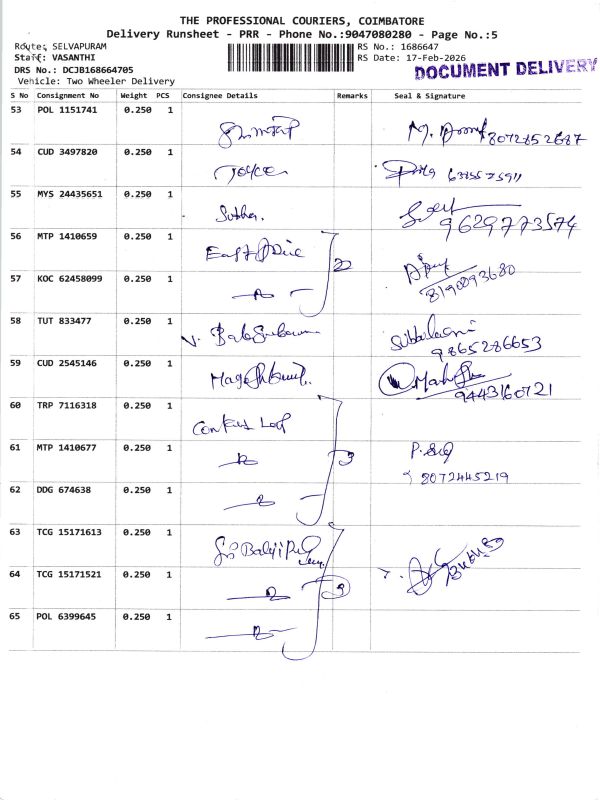 THE PROFESSIONAL COURIERS, COIMBATORE
Delivery Runsheet - PRR - Phone No.:9047080280 - Page No.:5
Route: SELVAPURAM
RS No.: 1686647
Staff: VASANTHI
RS Date: 17-Feb-2026
DRS No.: DCJB168664705
DOCUMENT DELIVERY
Vehicle: Two Wheeler Delivery
S No Consignment No Weight PCS Consignee Details Remarks Seal & Signature
53 POL 1151741 0.250 1
8072852687
54 CUD 3497820 0.250 1 Joyce
55 MYS 24435651 0.250 1 Subha.
9629773574
56 MTP 1410659 0.250 1 2
57 KOC 62458099 0.250 1
8190093680
58 TUT 833477 0.250 1
9865286653
59 CUD 2545146 0.250 1
9443160721
60 TRP 7116318 0.250 1
61 MTP 1410677 0.250 1 3
8072445219
62 DDG 674638 0.250 1
63 TCG 15171613 0.250 1
64 TCG 15171521 0.250 1 3
65 POL 6399645 0.250 1